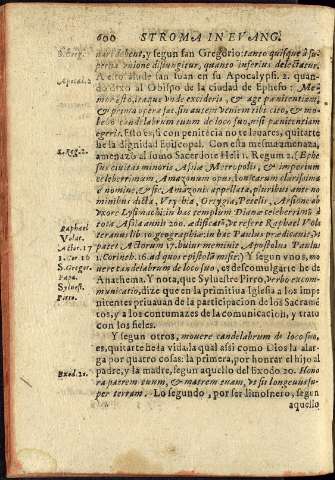 600 STROMA IN EVANG.
S. Greg. nar deben, y segun san Gregorio: tanto quisque à su-
perna vnione disiungitur, quanto inferius delectatur.
Apocal. 2 A esto alude san Iuan en su Apocalypsi. 2. quan-
do dixo al Obispo de la ciudad de Epheso: Me-
mor esto, itaque vnde excideris, & age pœnitentiam,
& prima opera fac, sin autem veniam tibi cito, & mo-
bebo candelabrum tuum de loco suo, nisi pœnitentiam
egeris. Esto es, si con penitēcia no te lauares, quitarte
he la dignidad Episcopal. Con esta mesma amenaza,
1. Reg. 2. amenazò al sumo Sacerdote Heli 1. Regum 2. (Ephe
sus ciuitas minoris Asiæ Metropolis, & imperium
celeberrimum Amazonum opus,
à nomine, & sic Amazonis appellata, pluribus ante no
minibus dicta, Vrybia, Ortygia, Ptelis, Arsione ab
vxore Lysimachi; in hac templum Dianæ celeberrimũ à
tota Asia annis 200. ædificatũ, vt refere Raphael Vola
Raphael teranus lib. 10. geographiæ: in hac Paulus prædicauit, vt
Volat.
Actor. 17 patet Actorum 17. huius meminit Apostolus Paulus
1. Cor. 16 1. Corinth. 16. ad quos epistolã misit;) Y segun vnos, mo
S. Gregor. uere candelabrum de loco suo, es descomulgarte ho de
Papa. Anathema. Y nota, que Syluestre Pirro, verbo excom-
Syluest. municatio, dize que en la primitiua Iglesia a los impe
Piero. nitentes priuauan de la participacion de los Sacramē
tos, y a los contumazes de la comunicacion, y trato
con los fieles.
Y segun otros, mouere candelabrum de loco suo,
es, quitarte he la vida: la qual assi como Dios la alar-
ga por quatro cosas: la primera, por honrar el hijo al
Exod. 20. padre, y la madre, segun aquello del Exodo 20. Hono
ra patrem tuum, & matrem tuam, vt sis longeuus su-
per terram. Lo segundo, por ser limosnero, segun
aquello